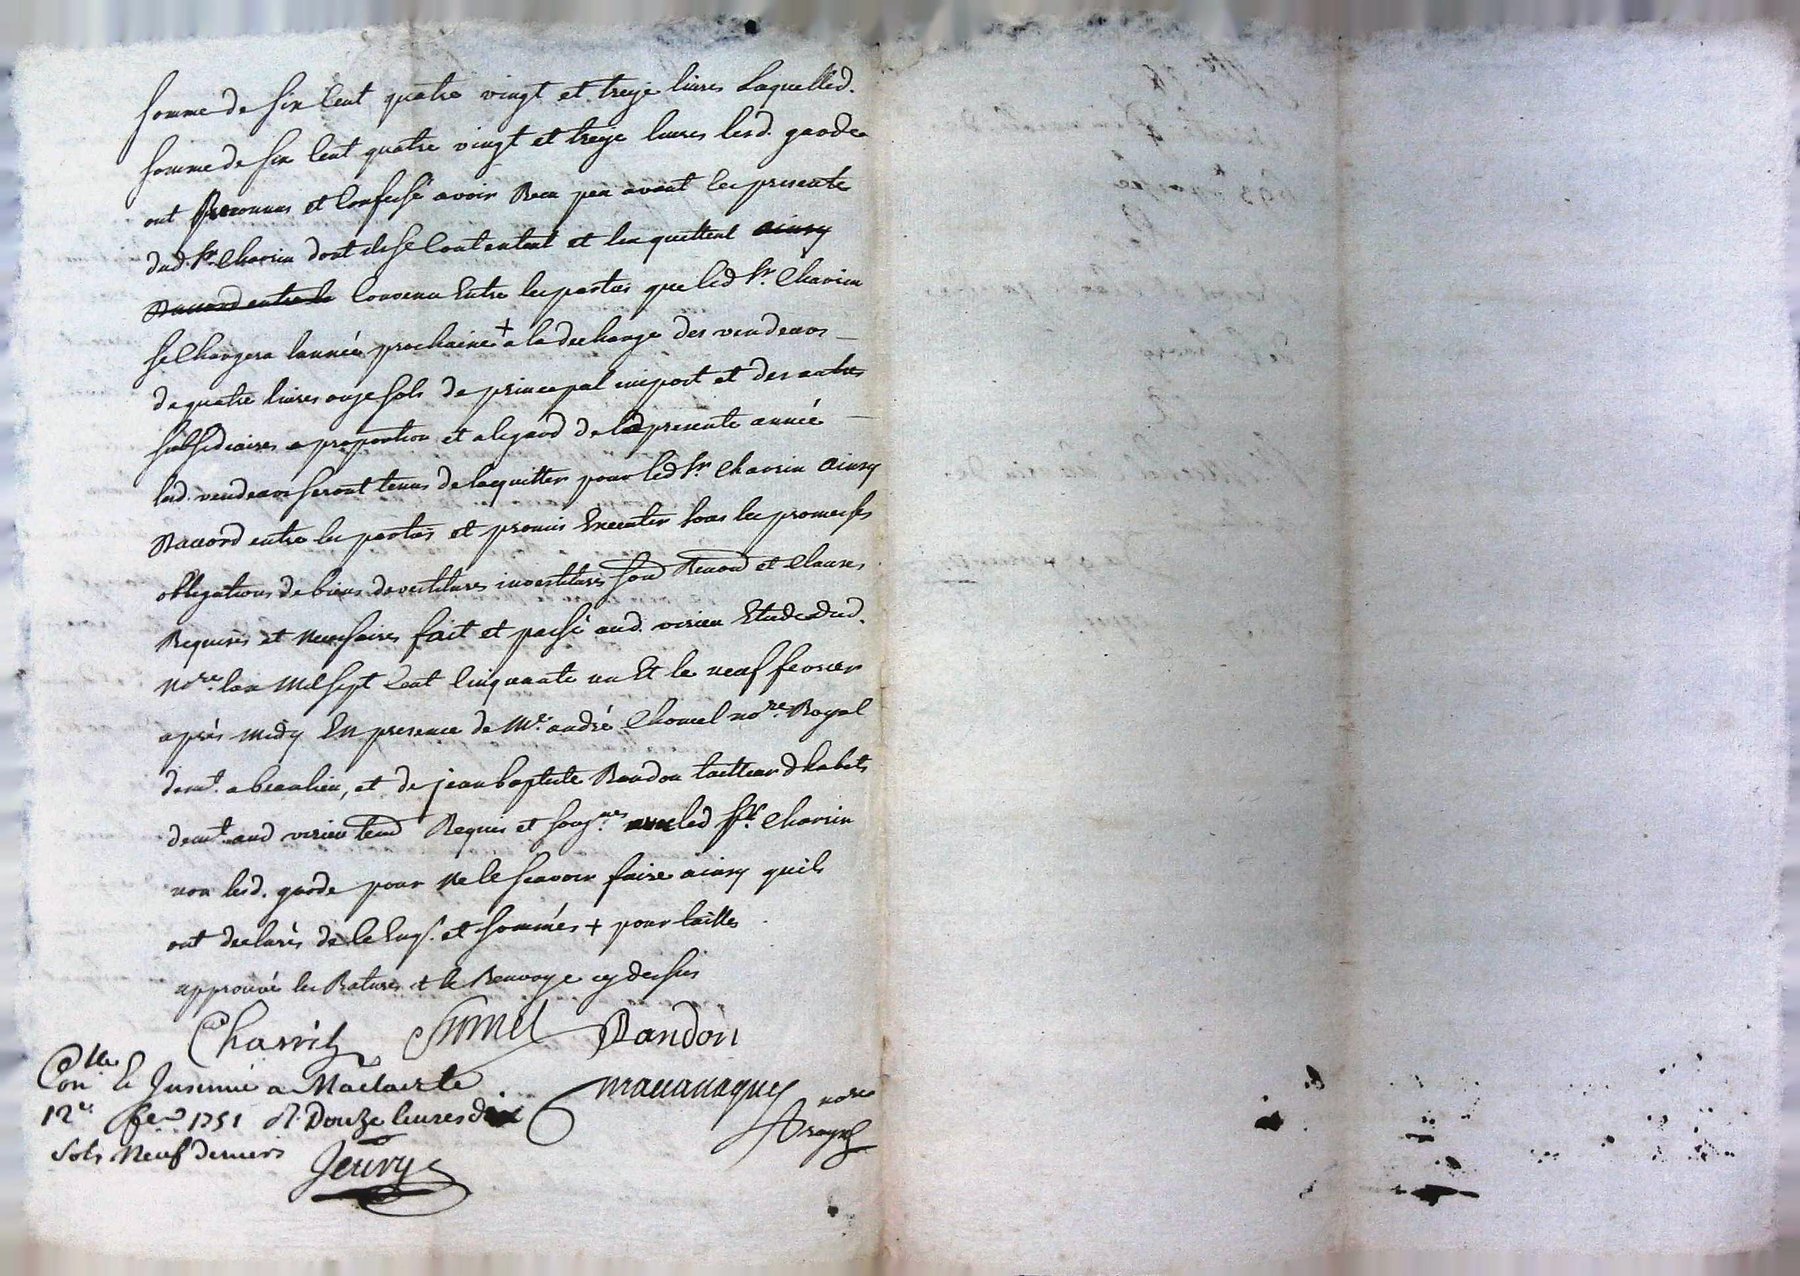 somme de six Cent quatre vingt et treize livres Laquelled.
somme de six Cent quatre vingt et treize livres lesd. garde
ont Reconnus et Confessé avoir Receu peu avant les presente
dud. Sr. Charrin dont ils se Contentent et len quittent ainsy
Daccord entre le Convenu Entre les parties que led Sr. Charrin
se Chargera lannée prochaine + a la decharge des vendeurs
de quatre livres onze sols de principal import et des autres
subsidiaires a proportion et alegard de la presente année
lesd. vendeurs seront tenus de laquitter pour led Sr. Charrin ainsy
Daccord entre les parties et promis Executer sous les promesses
obligations de biens devestitures investitures fond Renond et Clauses
Requises et Necessaires fait et passé aud. virieu Etude dud.
Nore. lan Mil sept Cent Cinquante un Et le neuf fevrier
après midy En presence de Me. andré Chomel nore. Royal
demt. a beaulieu, et de jean baptiste Randon tailleur dhabits
demt. aud virieu temd Requis et sousnes avec led Sr. Charrin
non lesd. garde pour Ne le scavoir faire ainsy quils
ont declarés de le Enqs. et sommés + pour tailles
approuvé les Ratures et le Renvoye cy dessus
Charrin Chomel Randon
Conlle Et Insinué a Maclas le
12e. fer. 1751 R. Douze livres dix
sols Neuf deniers
Jeury
nore